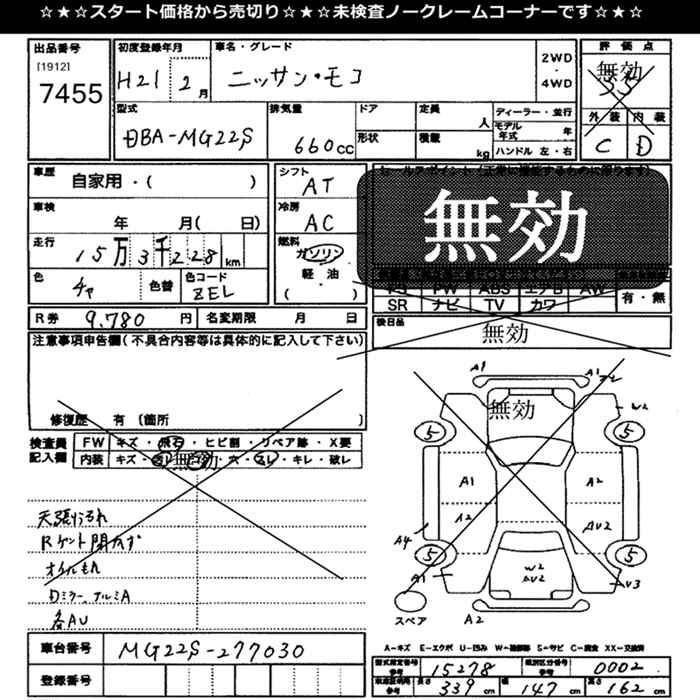 ☆★☆スタート価格から売切り☆★☆未検査ノークレームコーナーです☆★☆
出品番号
[1912]
7455
初度登録年月
H21 2月
車名・グレード
ニッサン・モコ
2WD
・
4WD
評価点
無効
外装 内装
C D
型式
DBA-MG22S
排気量
660cc
ドア
形状
定員
人
積載
kg
ディーラー・並行
モデル年式 年
ハンドル 左・右
車歴
自家用・( )
車検
年 月( 日)
走行
15万3千228km
色
チャ
色替
色コード
ZEL
シフト
AT
冷房
AC
燃料
ガソリン
軽・油
( )
無効
SR ナビ TV カワ
有・無
R券 9,780円
名変期限 月 日
後日品
無効
注意事項申告欄(不具合内容等は具体的に記入して下さい)
修復歴 有 〔箇所 〕
検査員記入欄
FW キズ・飛石・ヒビ割・リペア跡・X要
内装 キズ・
無効
穴・
キレ・破レ
オイルもれ
Dミラー、アルミA
各AU
A1
A1
W2
無効
5
5
A1
A2
A2
AU2
A4
5
5
A1
W2
AU2
スペア
A2
A-キズ E-エクボ U-凹み W-補修跡 S-サビ C-腐食 XX-交換済
車台番号 MG22S-277030
登録番号
型式指定番号 参考 15278
類別区分番号 参考 0002
長さ 339cm
幅 147cm
高さ 162cm